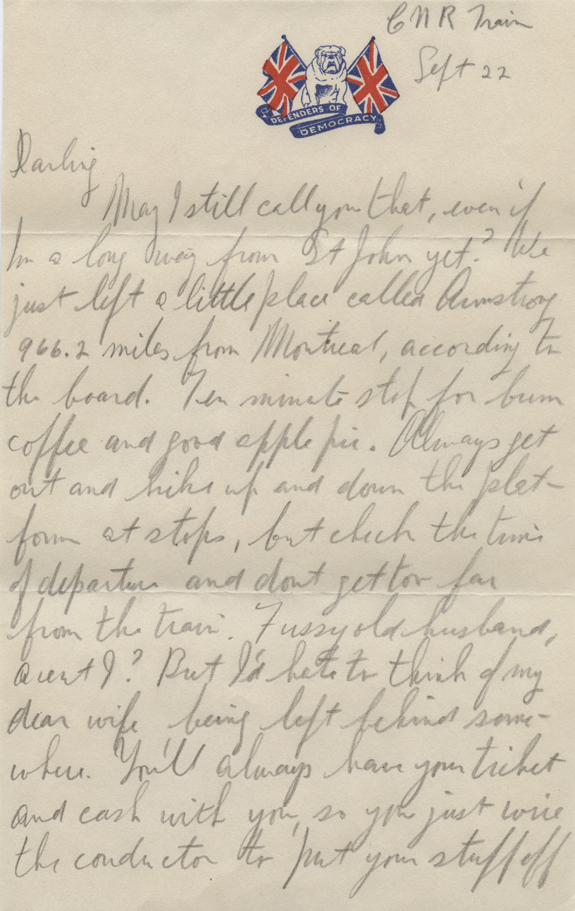 CNR Train
Sept 22
DEFENDERS OF
DEMOCRACY
Darling
May I still call you that, even if
I'm a long way from St John yet? We
just left a little place called Armstrong
966.2 miles from Montreal, according to
the board. Ten minute stop for bum
coffee and good apple pie. Always get
out and hike up and down the plat-
form at stops, but check the time
of departure and dont get too far
from the train. Fussy old husband,
arent I? But I'd hate to think of my
dear wife being left behind some-
where. You'll always have your ticket
and cash with you, so you just wire
the conductor to put your stuff off